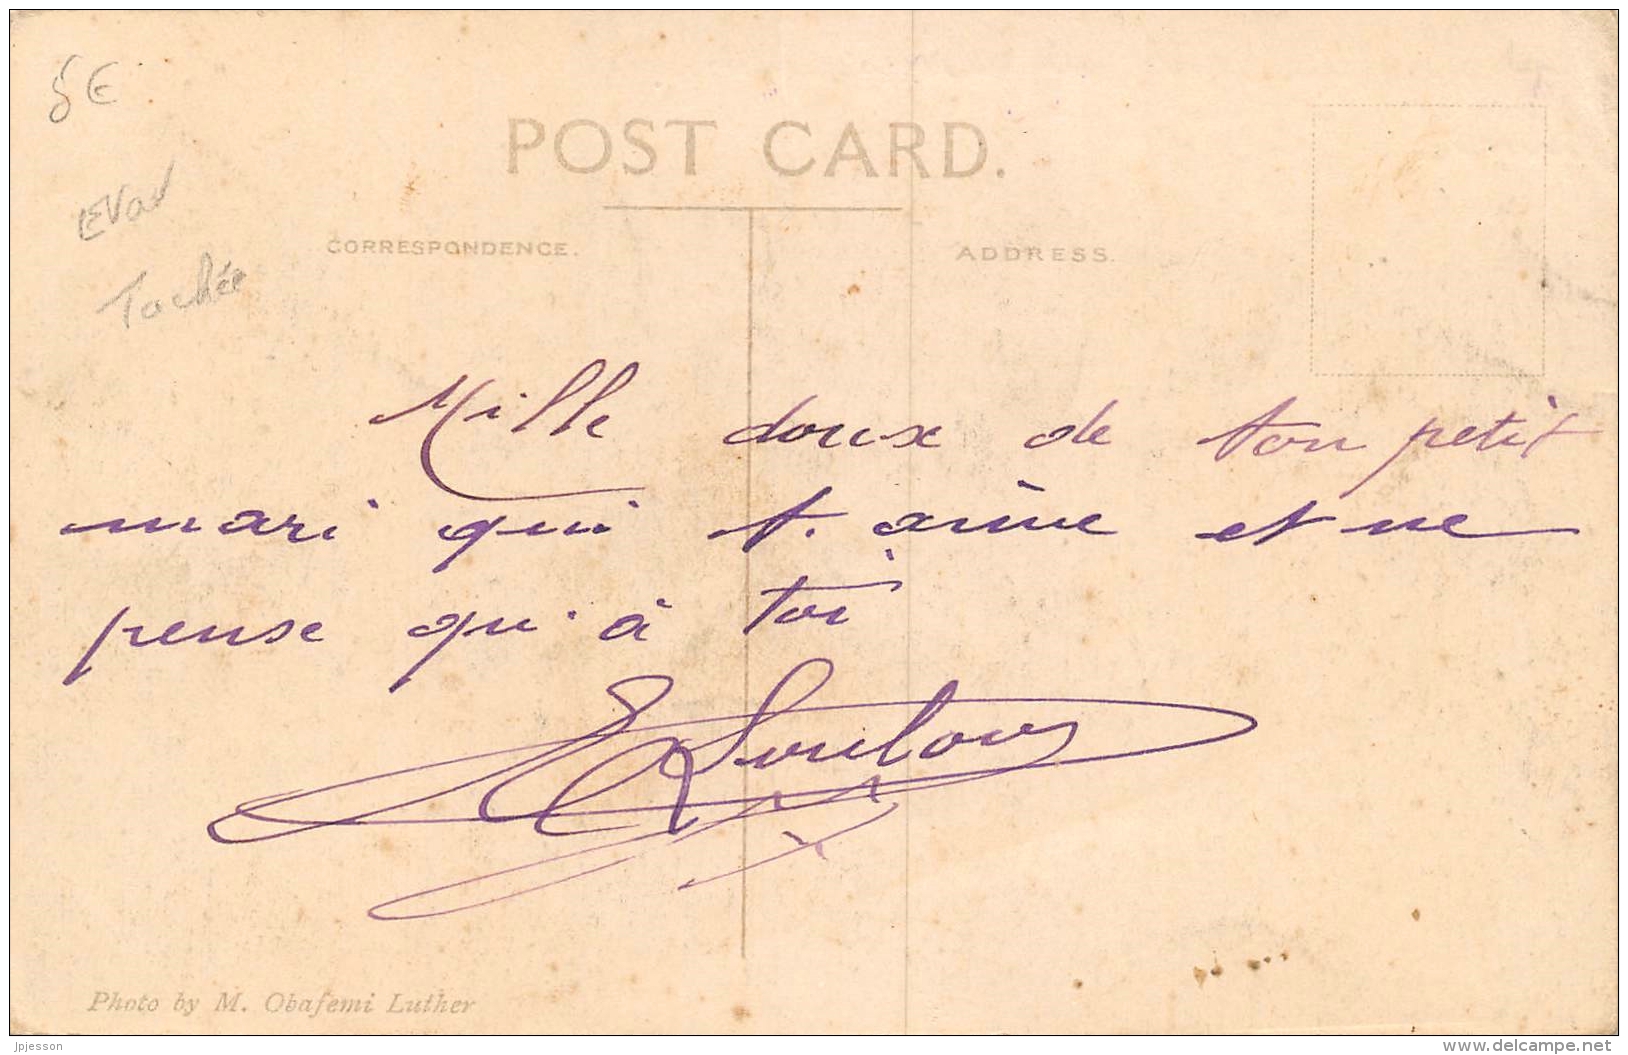 5€
POST CARD.
Tachée
CORRESPONDENCE.
ADDRESS.
Mille doux de ton petit
mari qui t'aime et ne
pense qu'à toi
Photo by M. Obafemi Luther
jpjesson
www.delcampe.net